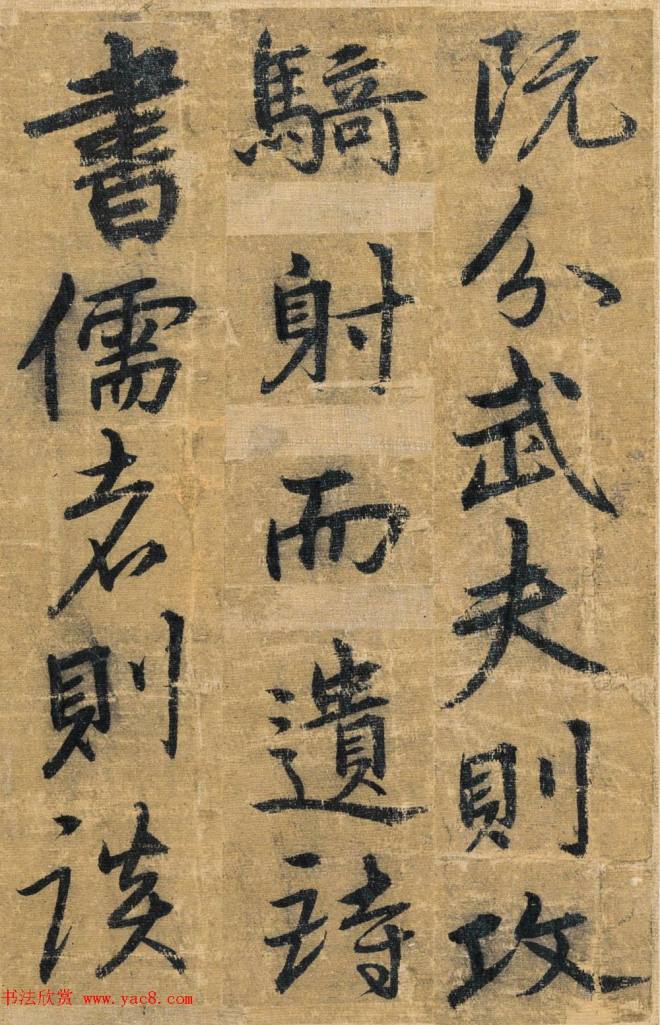 阮分武夫則攻
騎射而遺詩
書儒者則談
书法欣赏 www.yac8.com